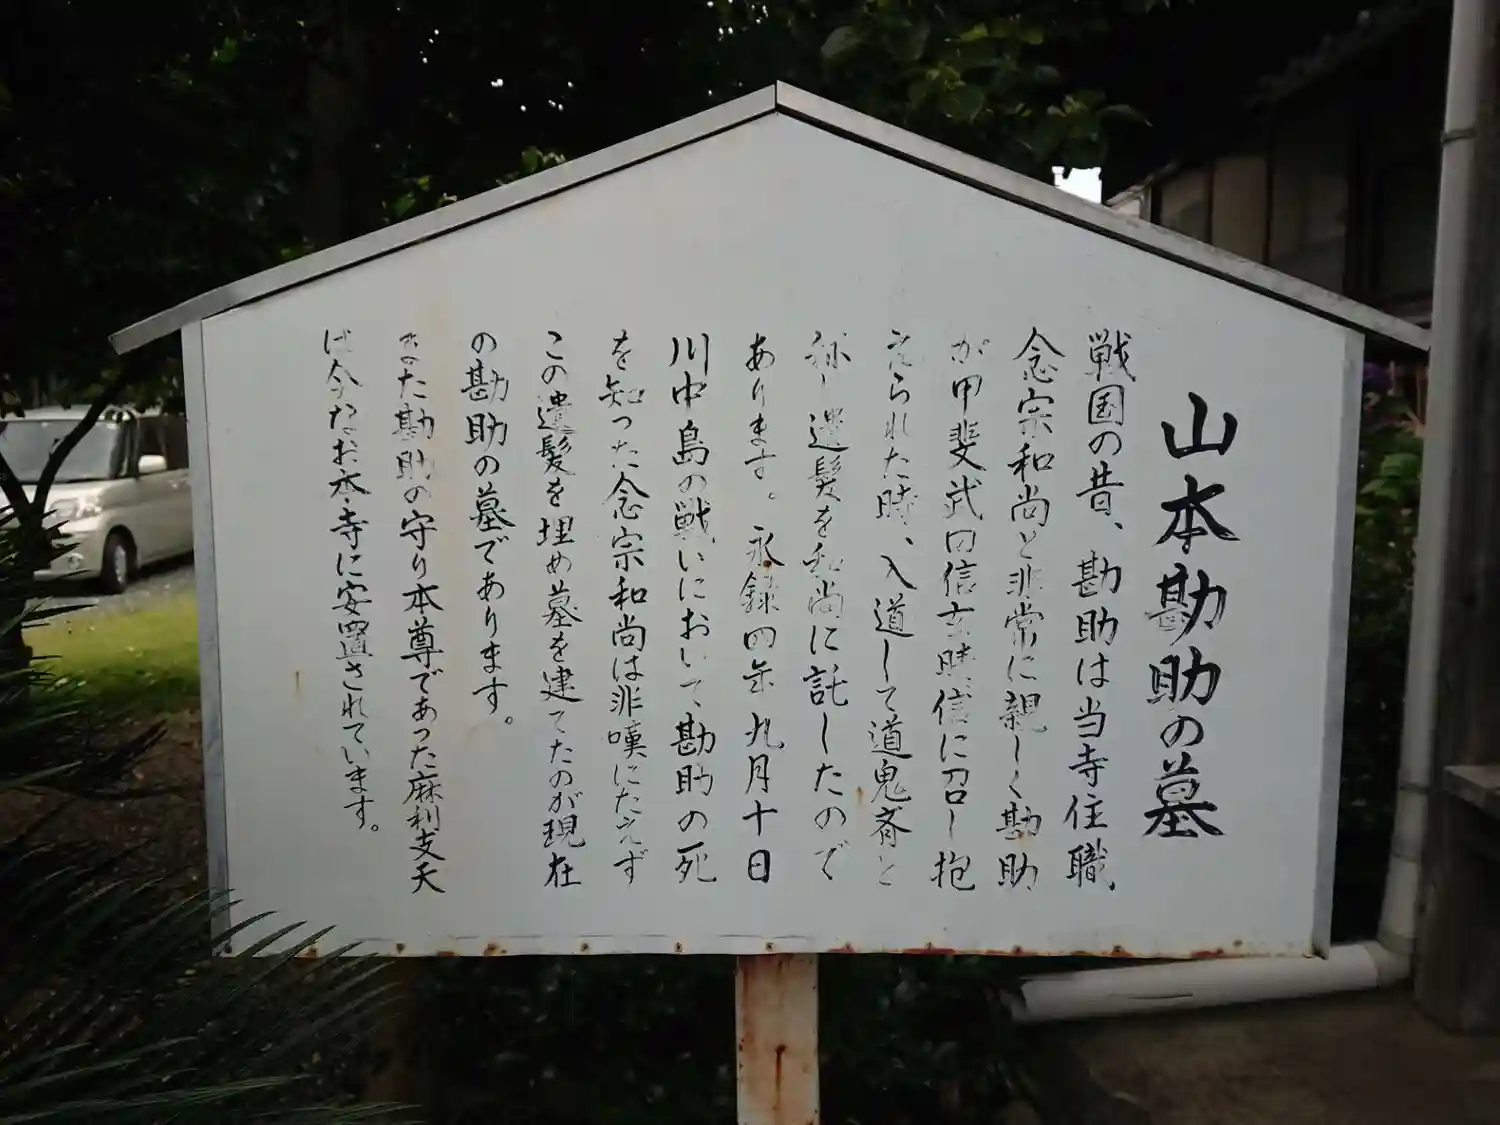 山本勘助の墓
戦国の昔、勘助は当寺住職、
念宗和尚と非常に親しく勘助
が甲斐武田信玄晴信に召し抱
えられた時、入道して道鬼斎と
称し遺髪を和尚に託したので
あります。永録四年九月十日
川中島の戦いにおいて勘助の死
を知った念宗和尚は非嘆にたえず
この遺髪を埋め墓を建てたのが現在
の勘助の墓であります。
また勘助の守り本尊であった麻利支天
は今なお本寺に安置されています。